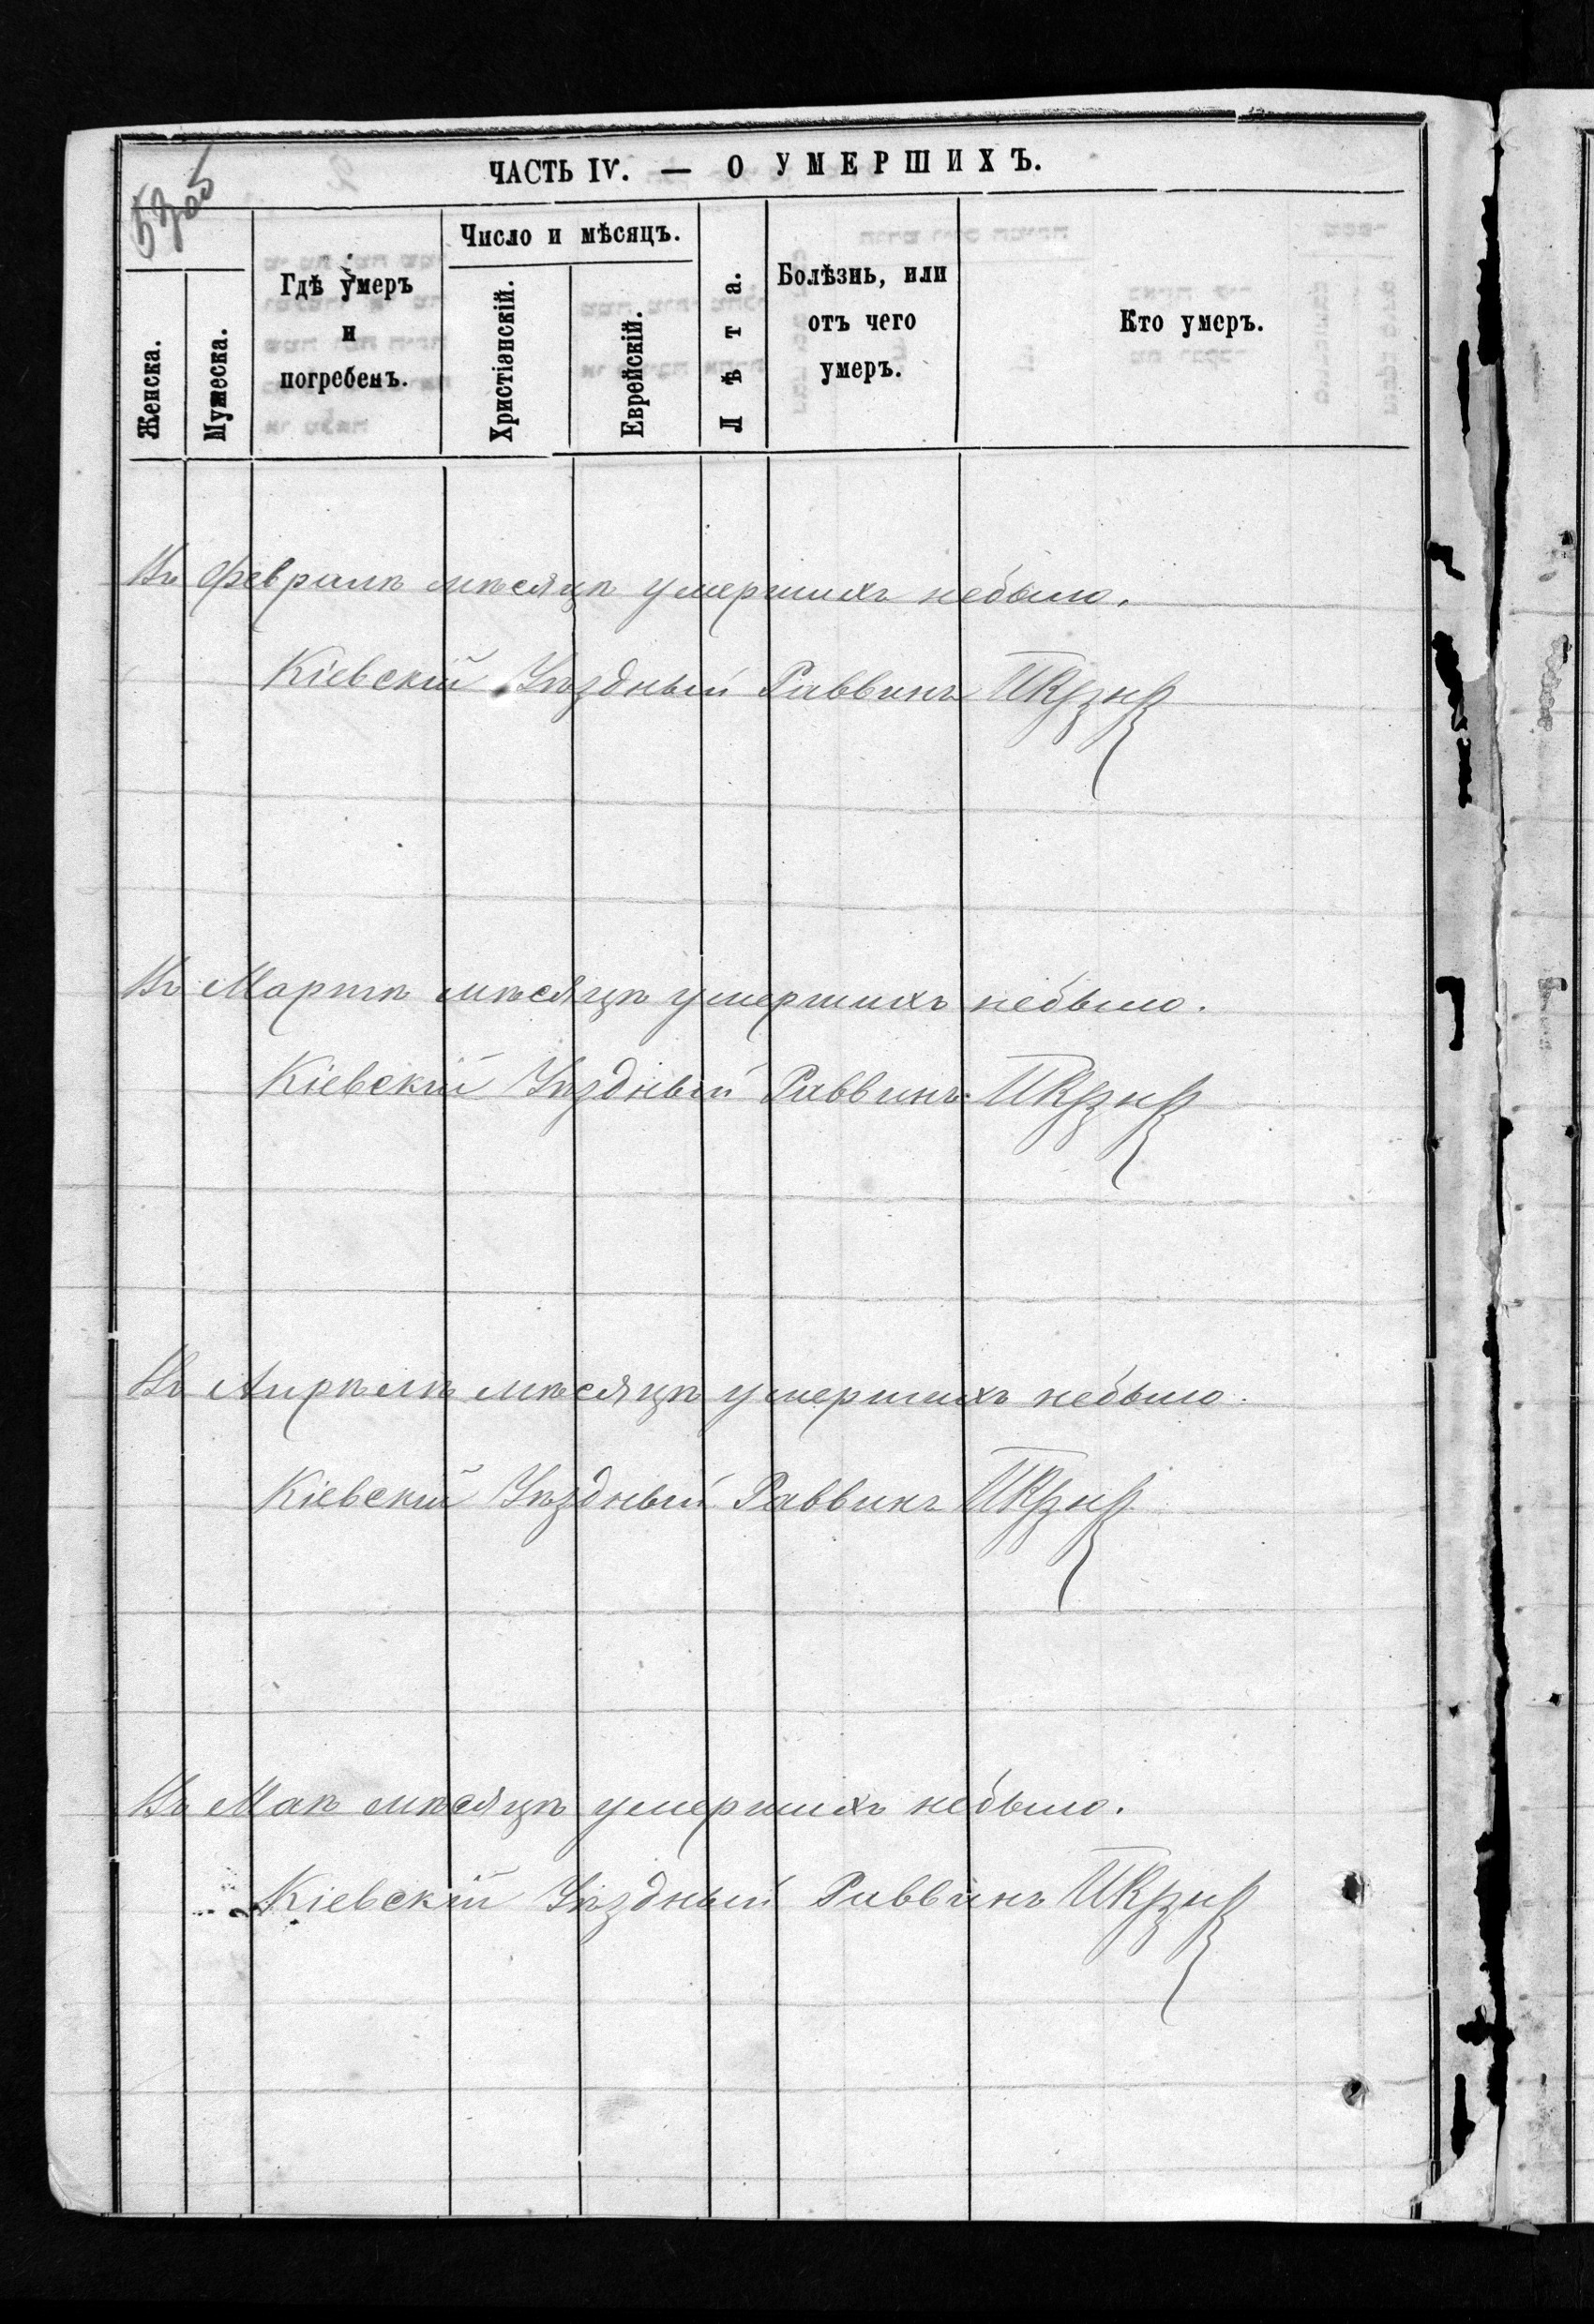 ЧАСТЬ IV. — О УМЕРШИХЪ.
Женска.
Мужеска.
Гдѣ умеръ
и
погребенъ.
Число и мѣсяцъ.
Христіанскій.
Еврейскій.
Лѣта.
Болѣзнь, или
отъ чего
умеръ.
Кто умеръ.
Въ Февралѣ мѣсяцѣ умершихъ небыло.
Кіевскій Уѣздный Раввинъ
Въ Мартѣ мѣсяцѣ умершихъ небыло.
Кіевскій Уѣздный Раввинъ
Въ Апрѣлѣ мѣсяцѣ умершихъ небыло.
Кіевскій Уѣздный Раввинъ
Въ Маѣ мѣсяцѣ умершихъ небыло.
Кіевскій Уѣздный Раввинъ